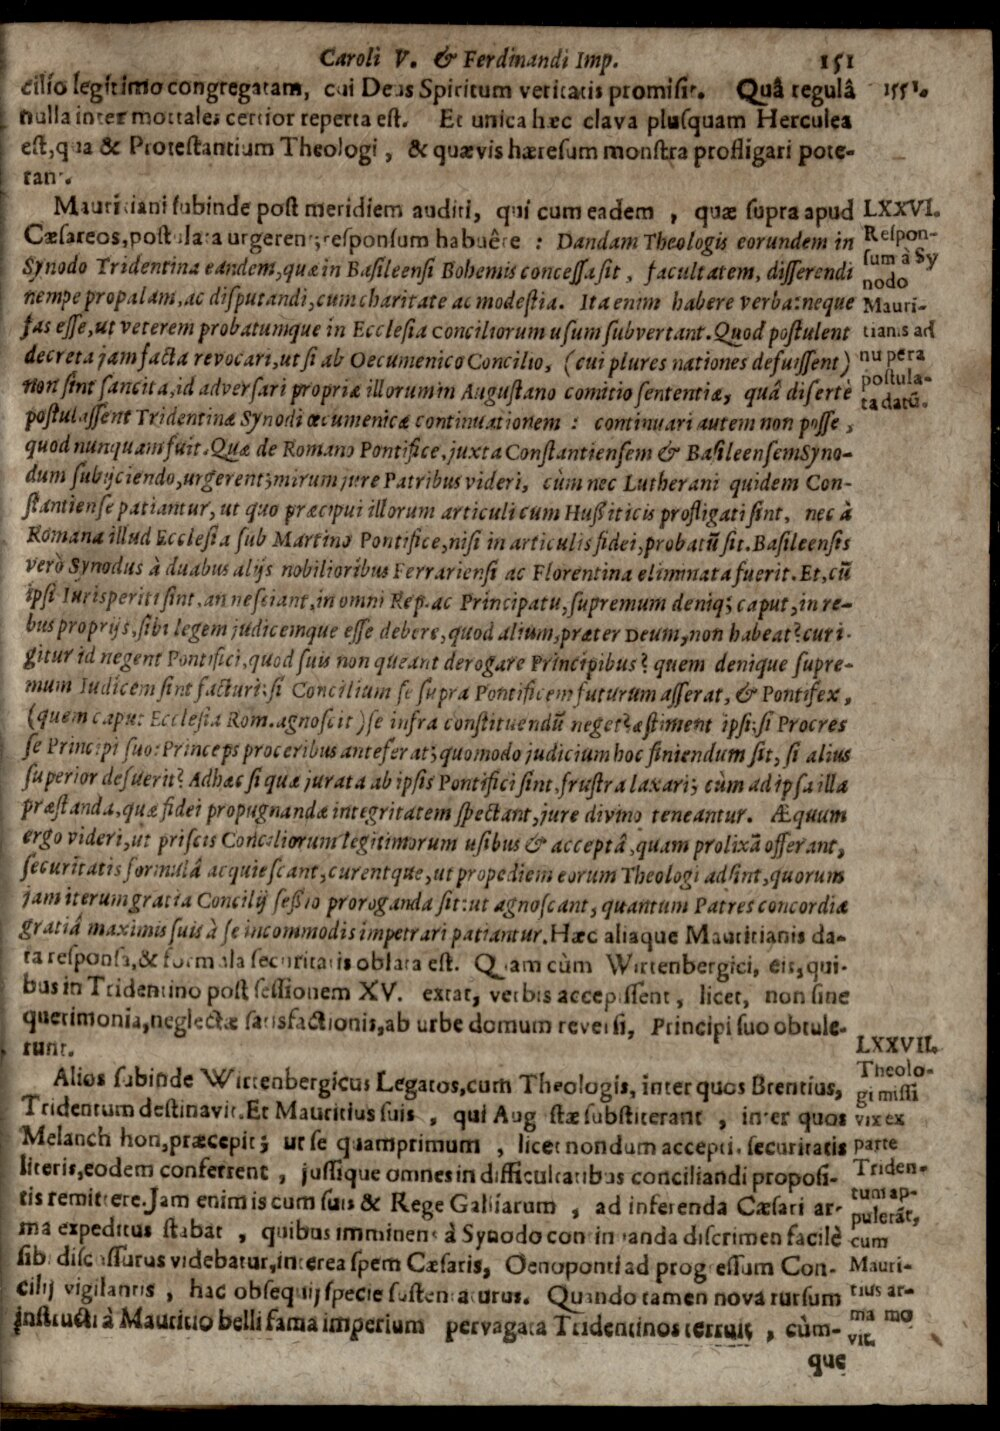 Caroli V. & Ferdinandi Imp. 151
cilio legitimo congregatam, cui Deus Spiritum veritatis promisit. Quâ regulâ 1551.
nulla inter mortales certior reperta est. Et unica hæc clava plusquam Herculea
est, qua & Protestantium Theologi, & quævis hæresum monstra profligari pote-
rant.
Mauritiani subinde post meridiem auditi, qui cum eadem, quæ supra apud
Cæsareos, postulata urgerent; responsum habuêre: Dandam Theologis eorundem in
Synodo Tridentina eandem, quæ in Basileensi Bohemis concessa sit, facultatem, disserendi
nempe propalam, ac disputandi, cum charitate ac modestia. Ita enim habere verba: neque
fas esse, ut veterem probatumque in Ecclesia Conciliorum usum subvertant. Quod postulent
decreta jam facta revocari, ut si ab Oecumenico Concilio, (cui plures nationes defuissent)
non sint sancita, id adversari propriæ illorum in Augustano comitio sententiæ, quâ disertè
postulassent Tridentinæ Synodi œcumenicæ continuationem: continuari autem non posse,
quod nunquam fuit. Quæ de Romano Pontifice, juxta Constantiensem & Basileensem Syno-
dum subijciendo, urgerent; mirum jure Patribus videri, cùm nec Lutherani quidem Con-
stantiense patiantur, ut quo præcipui illorum articuli cum Hußiticis profligati sint, nec à
Romana illud Ecclesia sub Martino Pontifice, nisi in articulis fidei, probatũ sit. Basileensis
verò Synodus à duabus alijs nobilioribus Ferrariensi ac Florentina eliminata fuerit. Et, cũ
ipsi Jurisperiti sint, an nesciant, in omni Rep. ac Principatu, supremum deniq; caput, in re-
bus proprijs, sibi legem judicemque esse debere, quod alium, præter Deum, non habeat? cur i-
gitur id negent Pontifici, quod suis non queant derogare Principibus? quem denique supre-
mum Judicem sint facturi: si Concilium se supra Pontificem futurum asserat, & Pontifex,
(quem caput Ecclesia Rom. agnoscit) se infra constituendũ neget? æstiment ipsi; si Proceres
se Principi suo: Princeps proceribus anteferat; quomodo judicium hoc finiendum sit, si alius
superior defuerit? Adhæc si quæ jurata ab ipsis Pontifici sint, frustra laxari; cùm ad ipsa illa
præstanda, quæ fidei propugnandæ integritatem spectant, jure divino teneantur. Æquum
ergo videri, ut priscis Conciliorum legitimorum usibus & acceptâ, quam prolixã offerant,
securitatis formulâ acquiescant, curentque, ut propediem eorum Theologi adsint, quorum
jam iterum gratia Concilij seßio proroganda sit: ut agnoscant, quantum Patres concordiæ
gratiâ maximis suis à se incommodis impetrari patiantur. Hæc aliaque Mauritianis da-
ta responsa, & formula securitatis oblata est. Quam cùm Wirtenbergici, eis, qui-
bus in Tridentino post sessionem XV. extat, verbis accepissent, licet, non sine
querimonia, neglectæ satisfactionis, ab urbe domum reversi, Principi suo obtule-
runt.
Alios subinde Wirtenbergicus Legatos, cum Theologis, inter quos Brentius,
Tridentum destinavit. Et Mauritius suis, qui Augustæ substiterant, inter quos
Melanchthon, præcepit; ut se quamprimum, licet nondum acceptis securitatis
literis, eodem conferrent, jussique omnes in difficultatibus conciliandi proposi-
tis remittere. Jam enim is cum suis & Rege Galliarum, ad inferenda Cæsari ar-
ma expeditus stabat, quibus imminens à Synodo continuanda discrimen facilè
sibi discussurus videbatur, interea spem Cæsaris, Oenoponti ad progressum Con-
cilij vigilantis, hac obsequij specie sustentaturus. Quando tamen nova rursum
instructi à Mauritio belli fama imperium pervagata Tridentinos terruit, cùm-
que
LXXVI.
Respon-
sum à Sy
nodo
Mauri-
tianis ad
nupera
postula-
ta datũ.
LXXVII.
Theolo-
gi missi
vix ex
parte
Triden-
tum ap-
pulerãt,
cum
Mauri-
tius ar-
ma mo
vit.